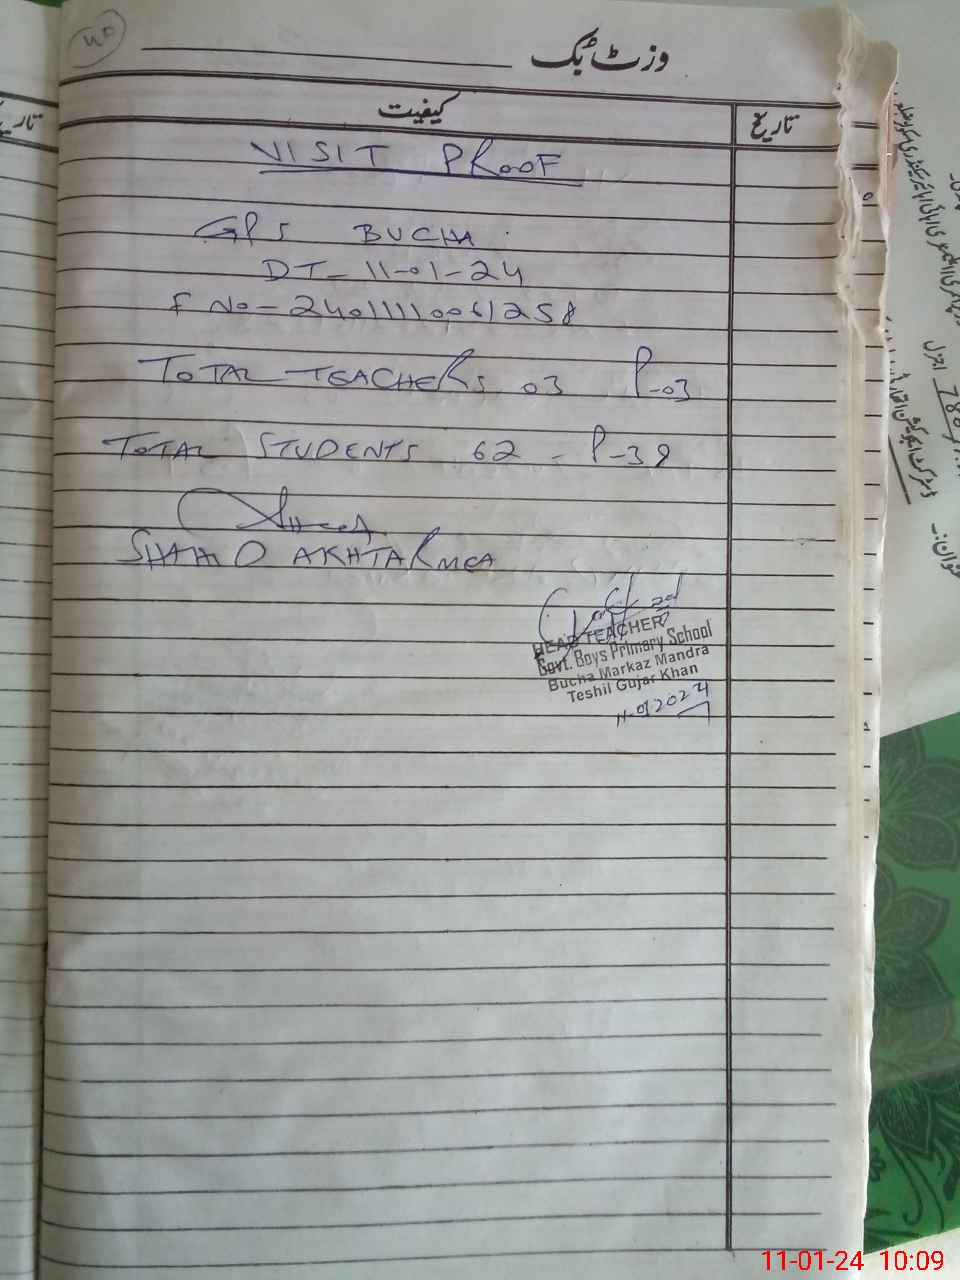 40
وزٹ بک
کیفیت
تاریخ
VISIT PROOF
GPS BUCHA
DT- 11-01-24
F No- 24011110061258
TOTAL TEACHERS 03 P-03
TOTAL STUDENTS 62 - P-39
SHAHID AKHTAR MEA
HEAD TEACHER
Govt. Boys Primary School
Bucha Markaz Mandra
Teshil Gujar Khan
11.01.2024
11-01-24 10:09